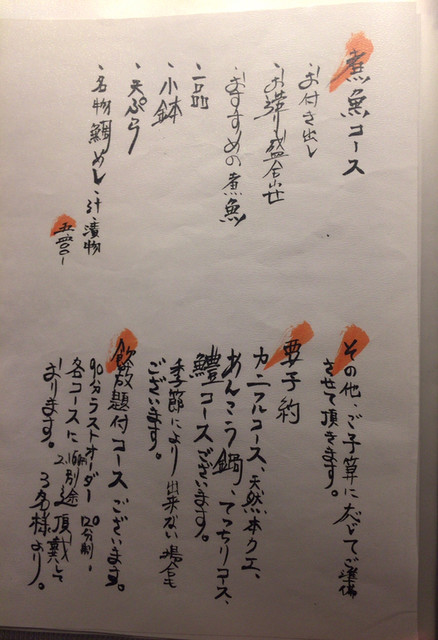 煮魚コース
・お付き出し
・お造り盛合せ
・おすすめの煮魚
・一品
・小鉢
・天ぷら
・名物鯛めし・汁・漬物
その他、ご予算に応じてご準備
させて頂きます。
要予約
カニフルコース、天然本クエ、
あんこう鍋、てっちりコース、
鱧コースございます。
季節により出来ない場合も
ございます。
飲放題付コースございます。
90分ラストオーダー 120分制
各コースに 別途頂戴して
おります。 2名様より。